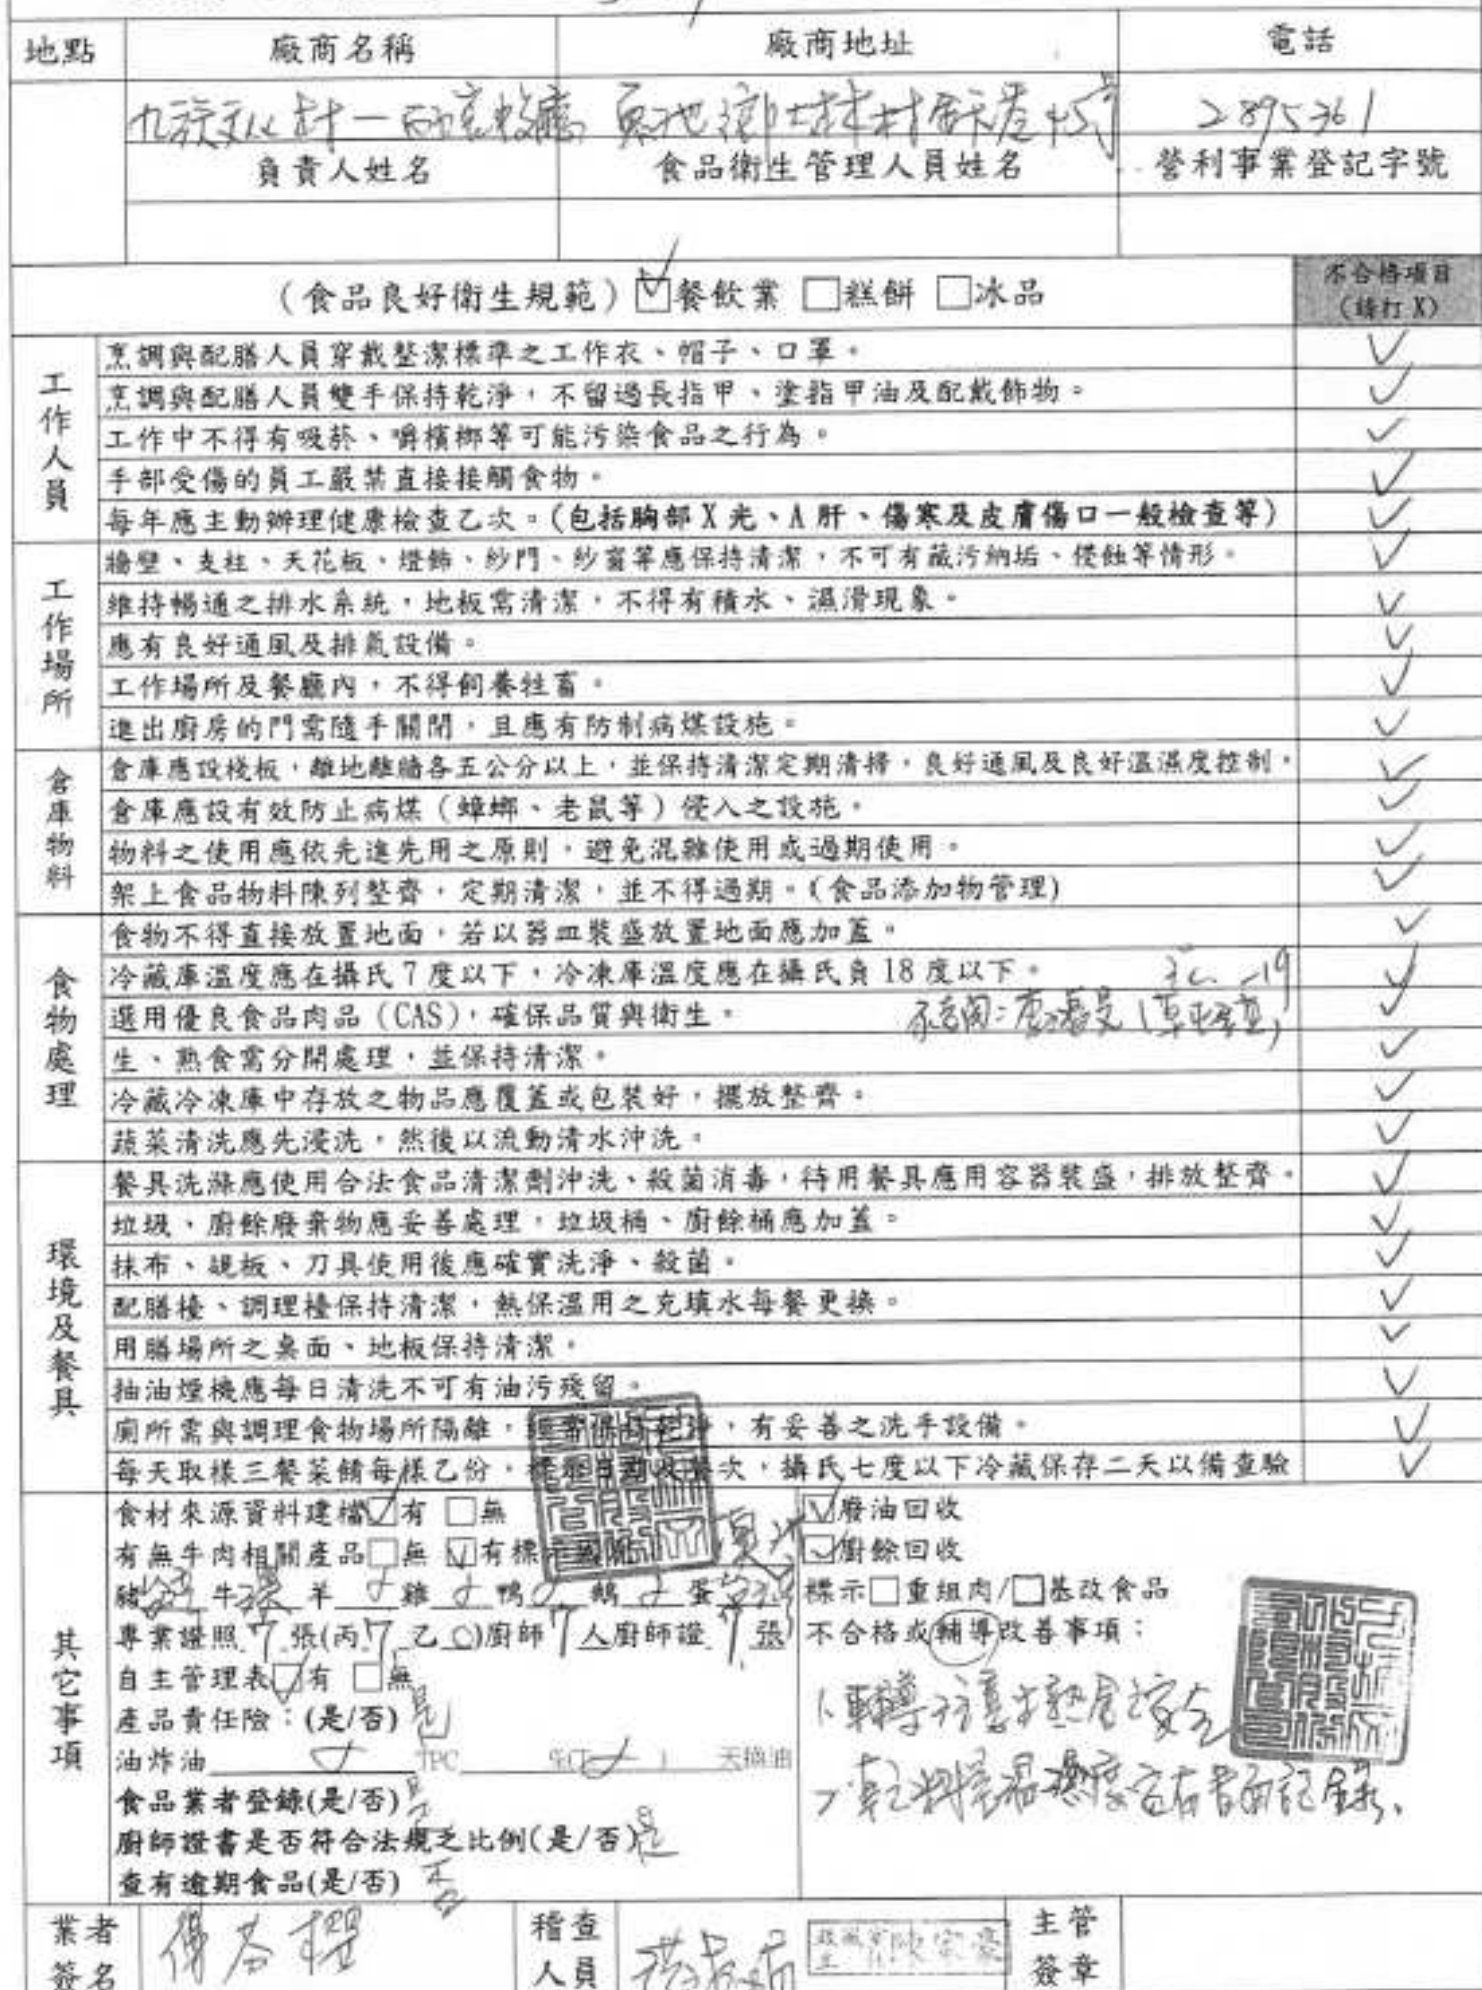 地點 廠商名稱 廠商地址 電話
九族文化村一 2895361
負責人姓名 食品衛生管理人員姓名 營利事業登記字號
(食品良好衛生規範)☑餐飲業 □糕餅 □冰品 不合格項目
(請打X)
工作人員
烹調與配膳人員穿戴整潔標準之工作衣、帽子、口罩。 ✓
烹調與配膳人員雙手保持乾淨,不留過長指甲、塗指甲油及配戴飾物。 ✓
工作中不得有吸菸、嚼檳榔等可能污染食品之行為。 ✓
手部受傷的員工嚴禁直接接觸食物。 ✓
每年應主動辦理健康檢查乙次。(包括胸部X光、A肝、傷寒及皮膚傷口一般檢查等) ✓
工作場所
牆壁、支柱、天花板、燈飾、紗門、紗窗等應保持清潔,不可有藏污納垢、侵蝕等情形。 ✓
維持暢通之排水系統,地板需清潔,不得有積水、濕滑現象。 ✓
應有良好通風及排氣設備。 ✓
工作場所及餐廳內,不得飼養牲畜。 ✓
進出廚房的門需隨手關閉,且應有防制病媒設施。 ✓
倉庫物料
倉庫應設棧板,離地離牆各五公分以上,並保持清潔定期清掃,良好通風及良好溫濕度控制。 ✓
倉庫應設有效防止病媒(蟑螂、老鼠等)侵入之設施。 ✓
物料之使用應依先進先用之原則,避免混雜使用或過期使用。 ✓
架上食品物料陳列整齊,定期清潔,並不得過期。(食品添加物管理) ✓
食物處理
食物不得直接放置地面,若以器皿裝盛放置地面應加蓋。 ✓
冷藏庫溫度應在攝氏7度以下,冷凍庫溫度應在攝氏負18度以下。 -19 ✓
選用優良食品肉品(CAS),確保品質與衛生。 ✓
生、熟食需分開處理,並保持清潔。 ✓
冷藏冷凍庫中存放之物品應覆蓋或包裝好,擺放整齊。 ✓
蔬菜清洗應先浸洗,然後以流動清水沖洗。 ✓
環境及餐具
餐具洗滌應使用合法食品清潔劑沖洗、殺菌消毒,待用餐具應用容器裝盛,排放整齊。 ✓
垃圾、廚餘廢棄物應妥善處理,垃圾桶、廚餘桶應加蓋。 ✓
抹布、砧板、刀具使用後應確實洗淨、殺菌。 ✓
配膳檯、調理檯保持清潔,熱保溫用之充填水每餐更換。 ✓
用膳場所之桌面、地板保持清潔。 ✓
抽油煙機應每日清洗不可有油污殘留。 ✓
廁所需與調理食物場所隔離,經常保持乾淨,有妥善之洗手設備。 ✓
每天取樣三餐菜餚每樣乙份,標示日期及餐次,攝氏七度以下冷藏保存二天以備查驗 ✓
其它事項
食材來源資料建檔☑有 □無
有無牛肉相關產品□無 ☑有標示
豬 牛 羊 雞 鴨 鵝 蛋
專業證照 7 張(丙 7 乙 0)廚師 7 人廚師證 7 張
自主管理表☑有 □無
產品責任險:(是/否) 是
油炸油 TPC %(T ) 天換油
食品業者登錄(是/否) 是
廚師證書是否符合法規之比例(是/否) 是
查有逾期食品(是/否) 否
☑廢油回收
☑廚餘回收
標示□重組肉/□基改食品
不合格或輔導改善事項:
1.輔導注意
業者簽名
稽查人員
主管簽章